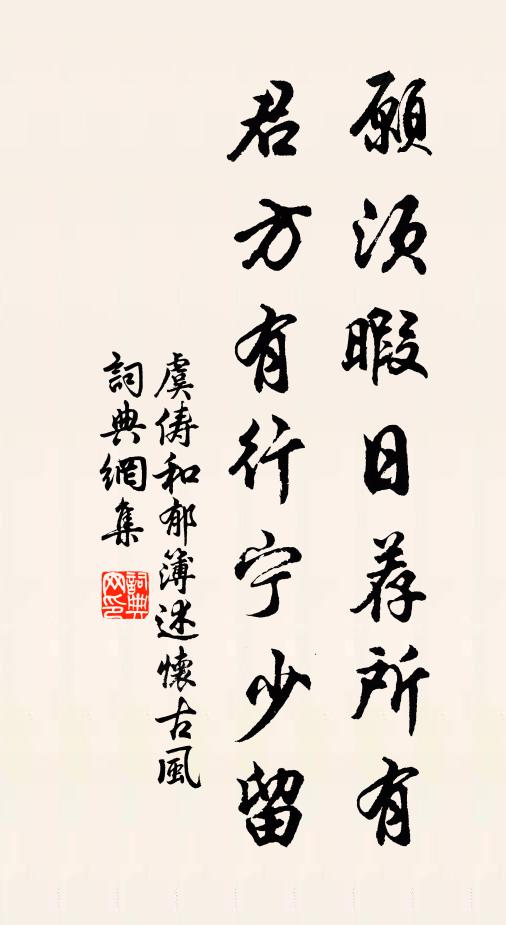 願須暇日荐所有
君方有行宁少留
虞俦和郁簿述懷古風
詞典網集
詞典网印